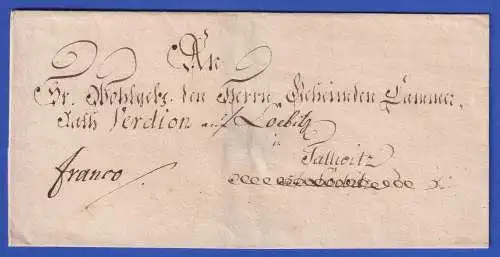 An
Sr. Wohlgeb. den Herrn Geheimden Cammer,
Rath Verdion auf Loebitz
in
Tallwitz
franco